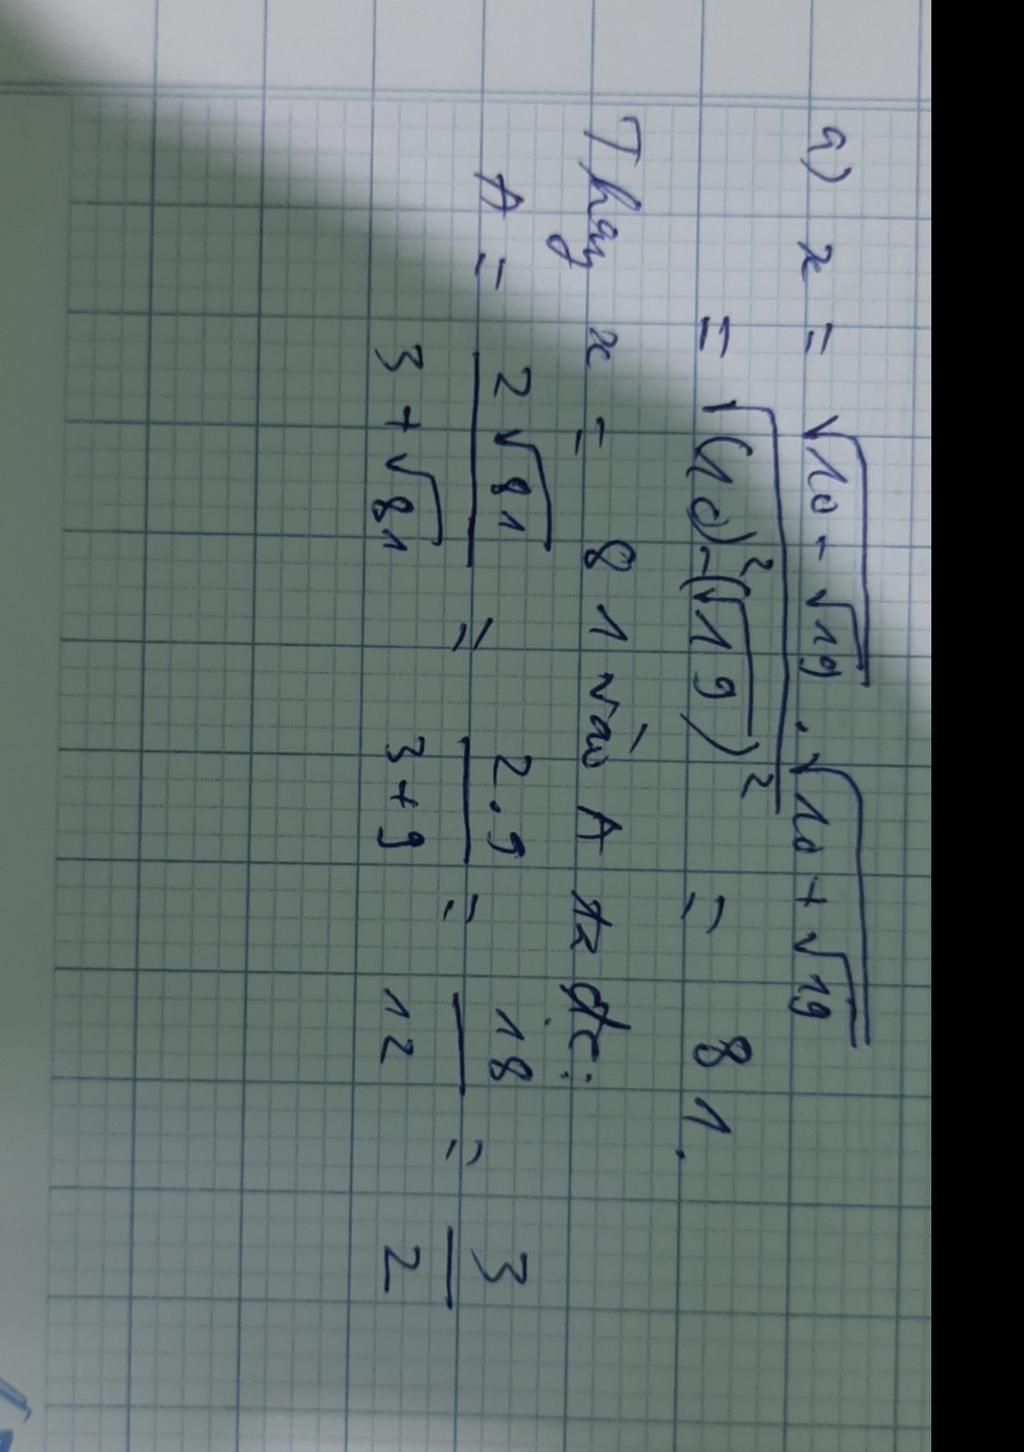 a) x = √(10 - √19) . √(10 + √19)
= √((10)² - (√19)²) = 81.
Thay x = 81 vào A ta đc:
A = (2√81)/(3 + √81) = (2.9)/(3 + 9) = 18/12 = 3/2